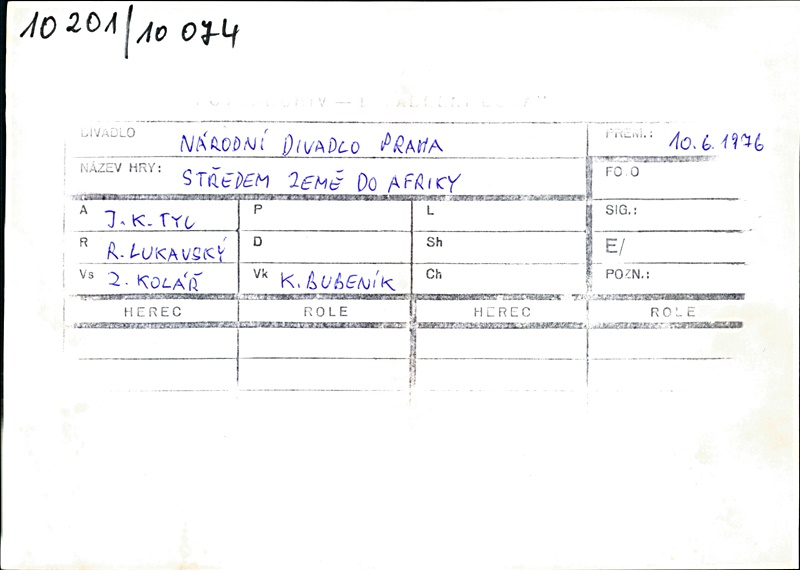 10 201/10 074
DIVADLO NÁRODNÍ DIVADLO PRAHA PREM.: 10.6.1976
NÁZEV HRY: STŘEDEM ZEMĚ DO AFRIKY FO O
A J.K.TYL P L SIG.:
R R.LUKAVSKÝ D Sh E/
Vs Z. KOLÁŘ Vk K.BUBENÍK Ch POZN.:
HEREC ROLE HEREC ROLE